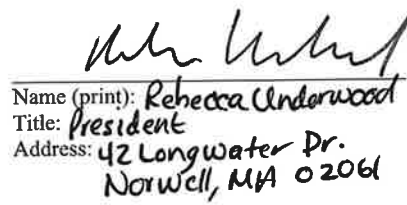 Name (print): Rebecca Underwood
Title: President
Address: 42 Longwater Dr.
Norwell, MA 02061